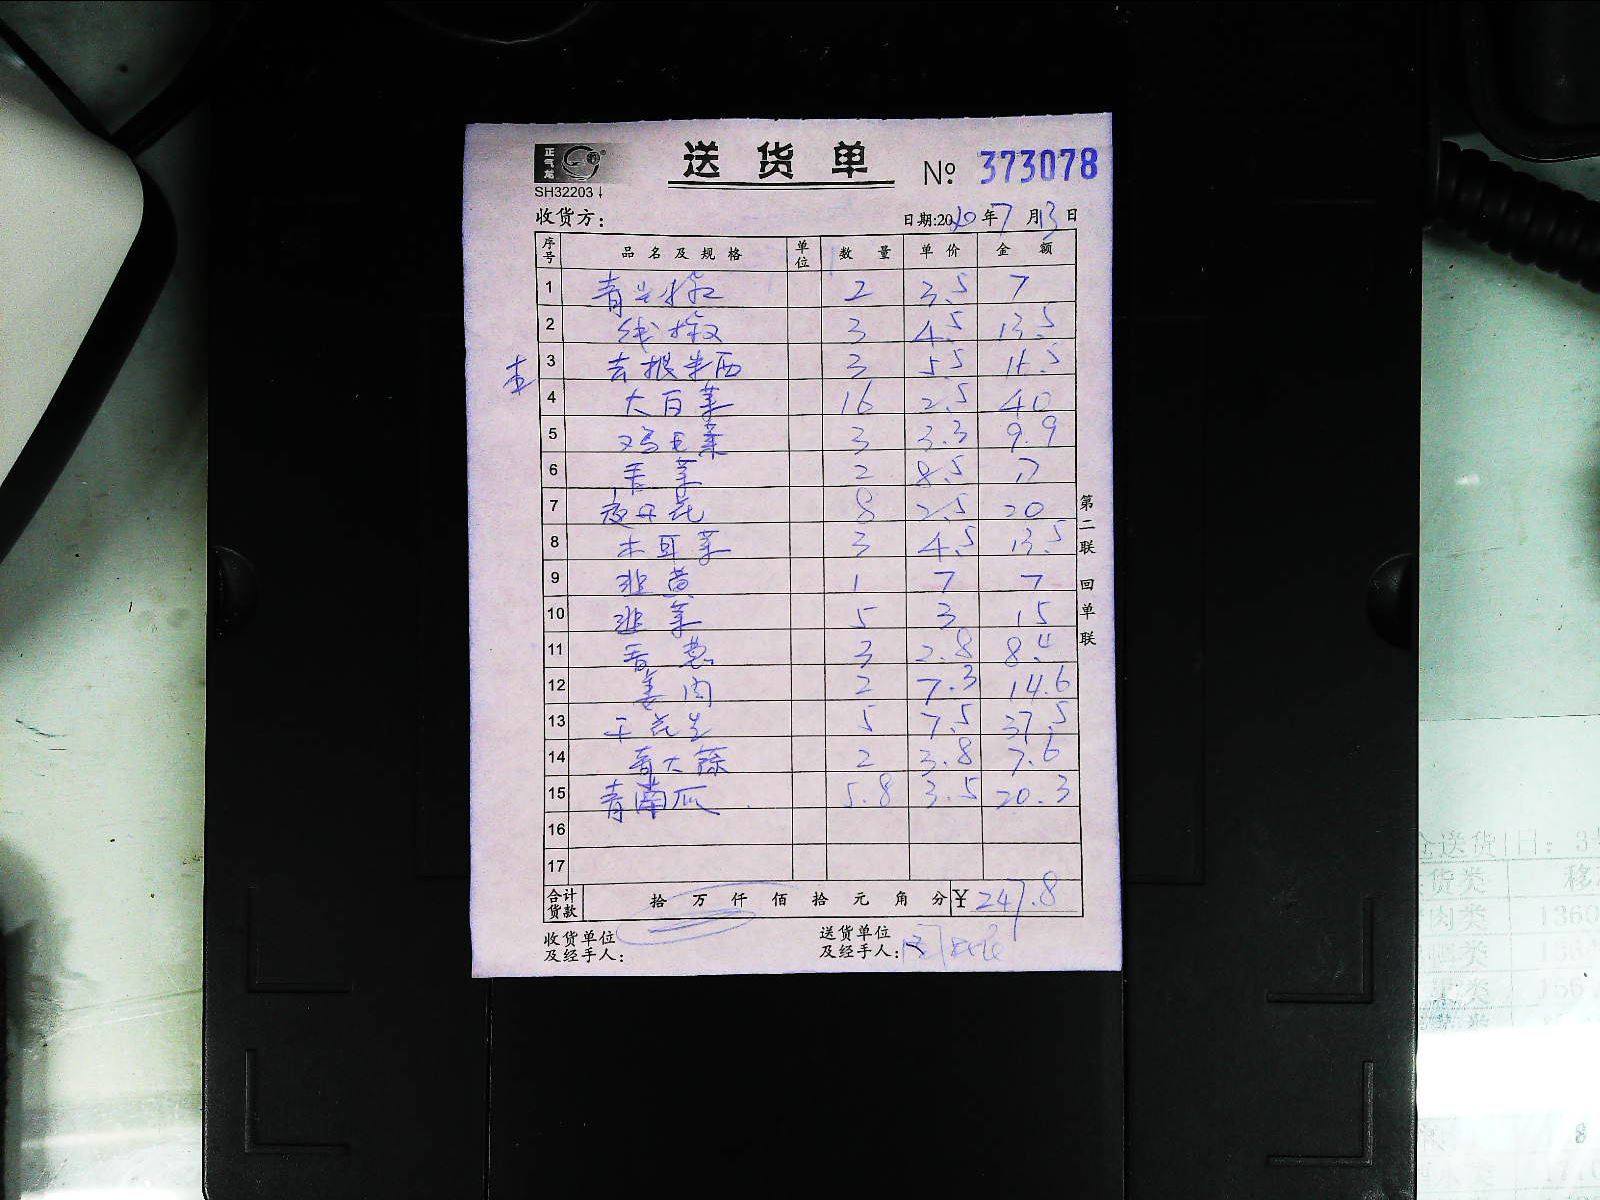 正气龙
SH32203
送货单 № 373078
收货方： 日期:2020年7月13日
序号 品名及规格 单位 数量 单价 金额
1 青尖椒 2 3.5 7
2 线椒 3 4.5 13.5
3 去根生西 3 5.5 16.5
4 大白菜 16 2.5 40
5 鸡毛菜 3 3.3 9.9
6 香菜 2 8.5 17
7 夜开花 8 2.5 20
8 木耳菜 3 4.5 13.5
9 韭黄 1 7 7
10 韭菜 5 3 15
11 香葱 3 2.8 8.4
12 姜肉 2 7.3 14.6
13 干花生 5 7.5 37.5
14 青大蒜 2 3.8 7.6
15 青南瓜 5.8 3.5 20.3
16
17
合计货款 拾万仟佰拾元角分 ¥ 247.8
收货单位及经手人： 送货单位及经手人：
第二联 回单联
送货日：
货类
肉类 1360